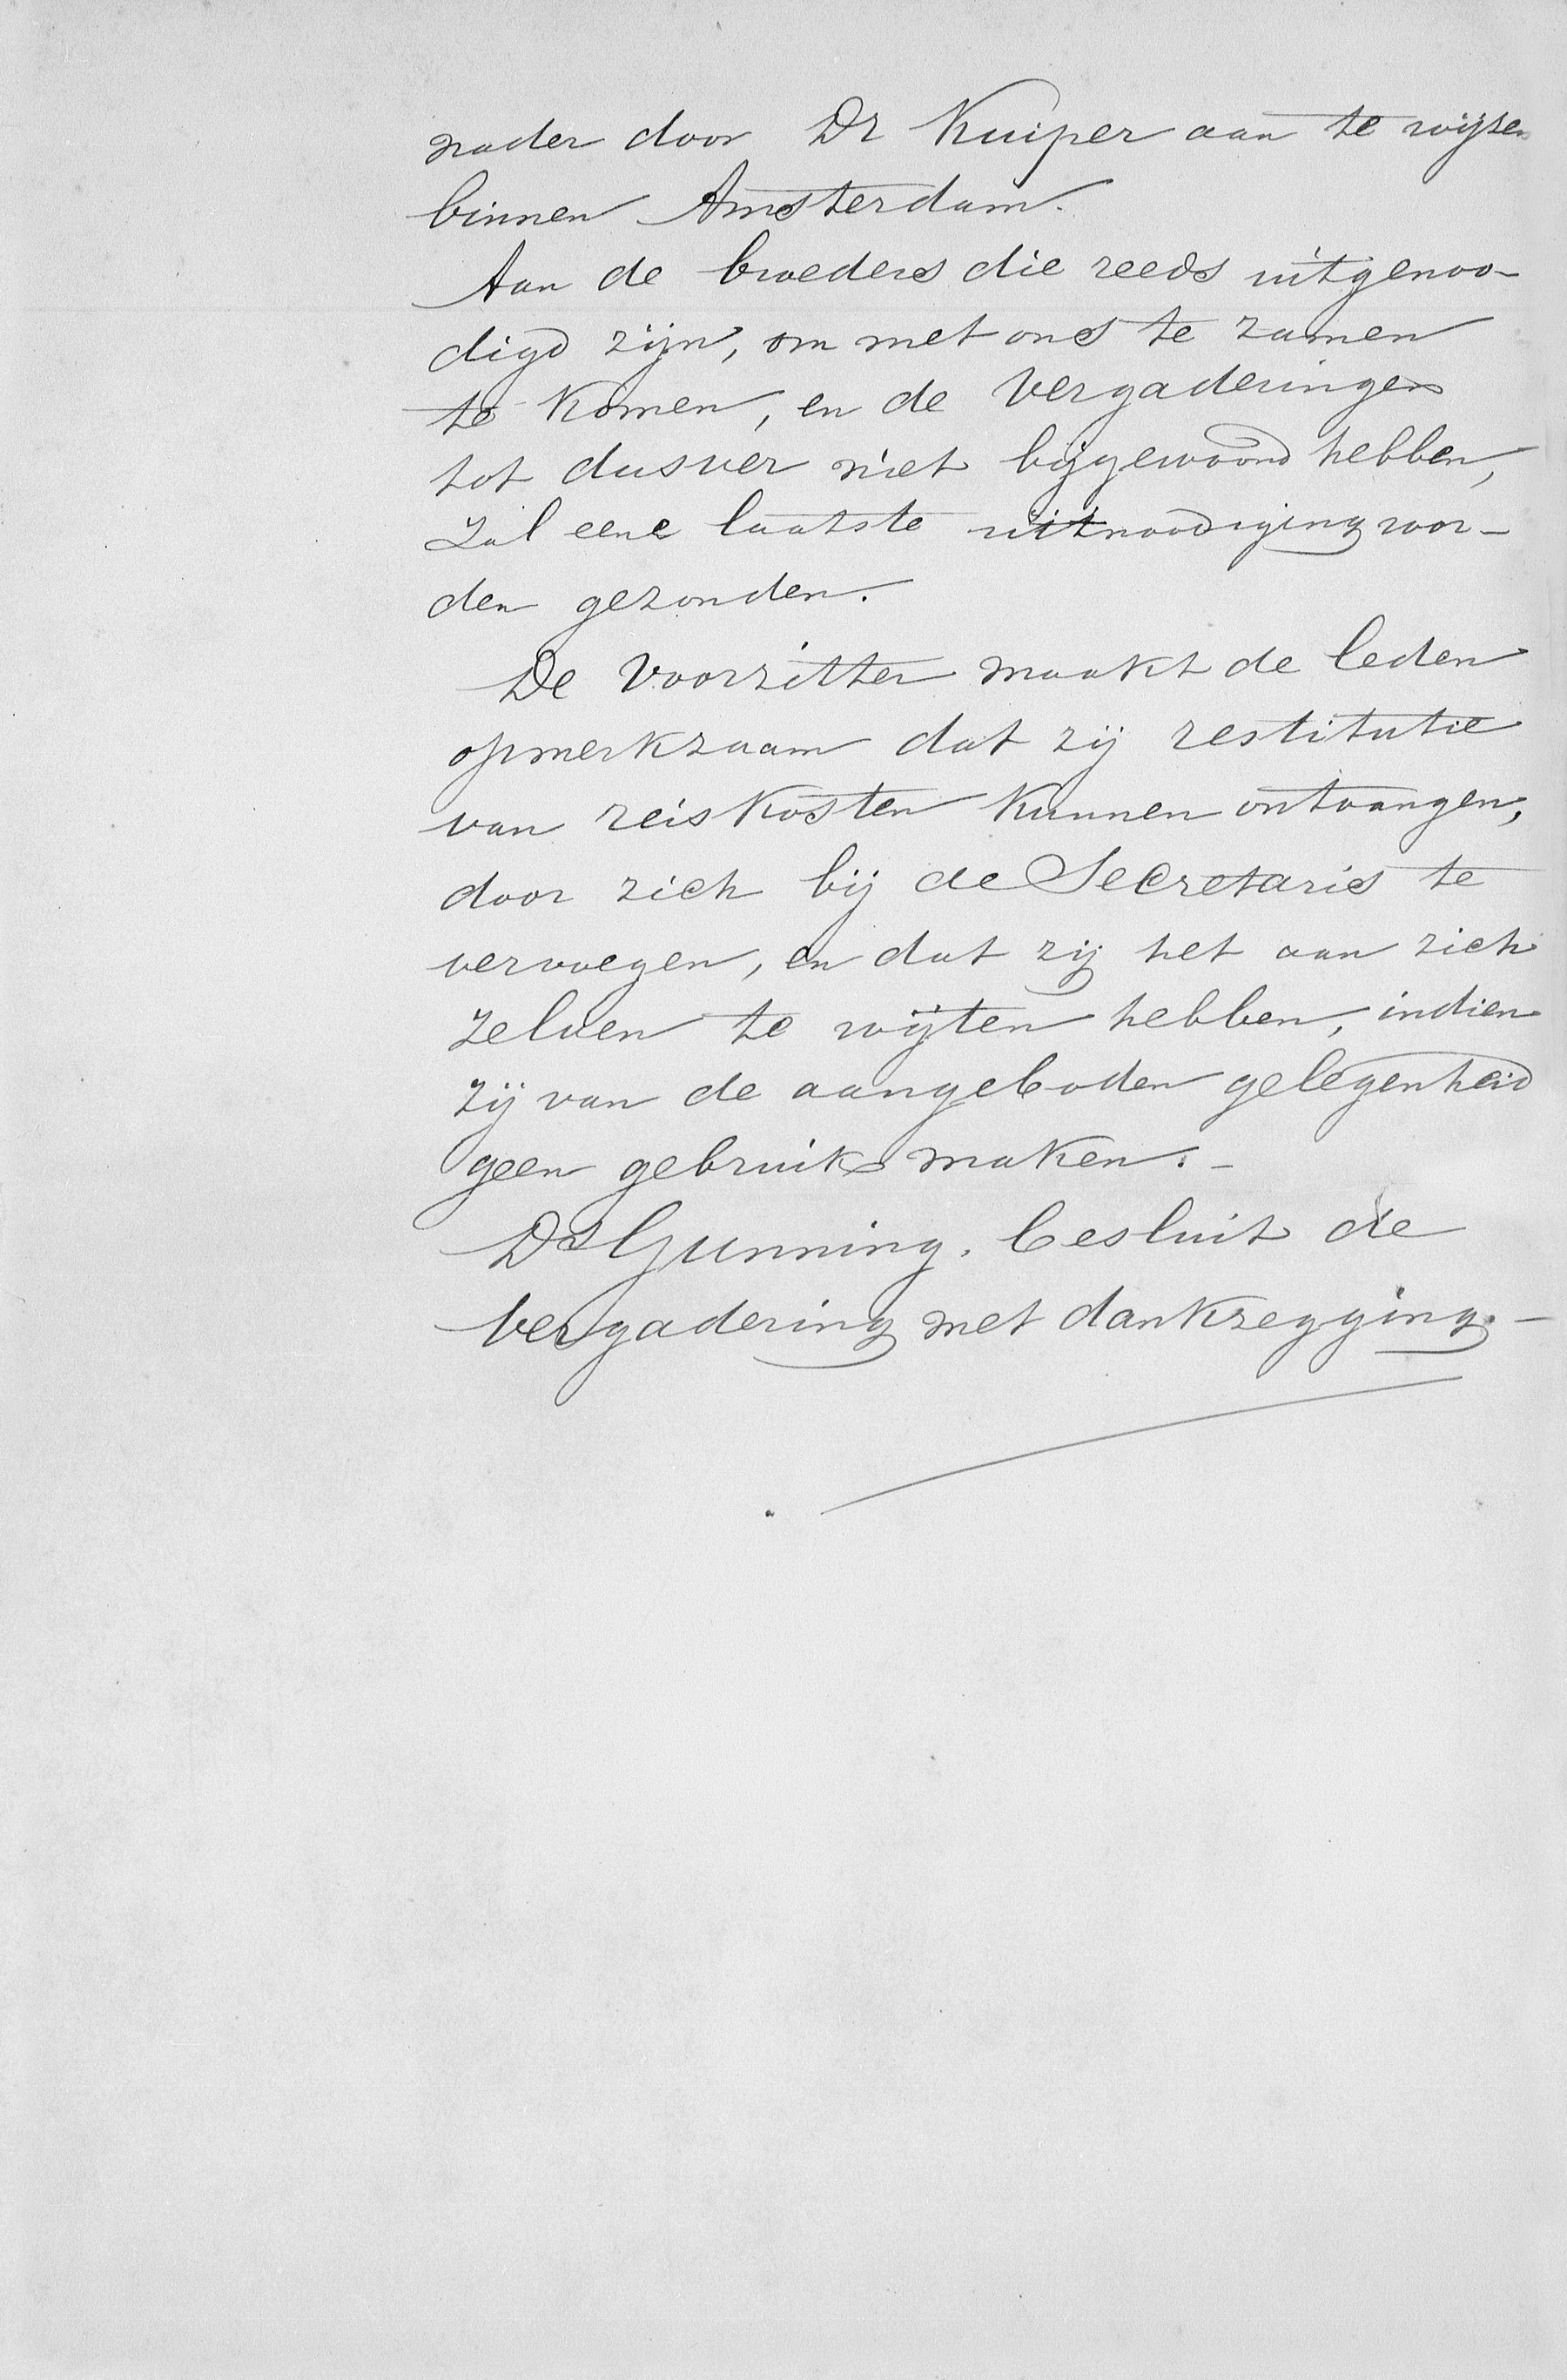 nader door Dr Kuiper aan te wijzen
binnen Amsterdam.
Aan de broeders die reeds uitgenoo-
digd zijn, om met ons te zamen
te komen, en de Vergaderingen
tot dusver niet bijgewoond hebben,
zal eene laatste uitnoodiging wor-
den gezonden.
De Voorzitter maakt de leden
opmerkzaam dat zij restitutie
van reiskosten kunnen ontvangen,
door zich bij de Secretaris te
vervoegen, en dat zij het aan zich
zelven te wijten hebben, indien
zij van de aangeboden gelegenheid
geen gebruik maken. -
Ds Gunning. besluit de
vergadering met dankzegging. -